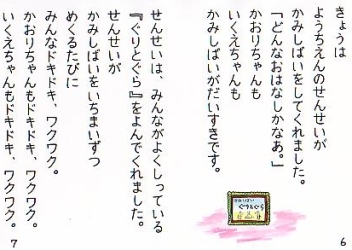 きょうは
ようちえんのせんせいが
かみしばいをしてくれました。
「どんなおはなしかなあ。」
かおりちゃんも
いくえちゃんも
かみしばいがだいすきです。
ぐりとぐら
6
せんせいは、みんながよくしっている
『ぐりとぐら』をよんでくれました。
せんせいが
かみしばいをいちまいずつ
めくるたびに
みんなドキドキ、ワクワク。
かおりちゃんもドキドキ、ワクワク。
いくえちゃんもドキドキ、ワクワク。
7